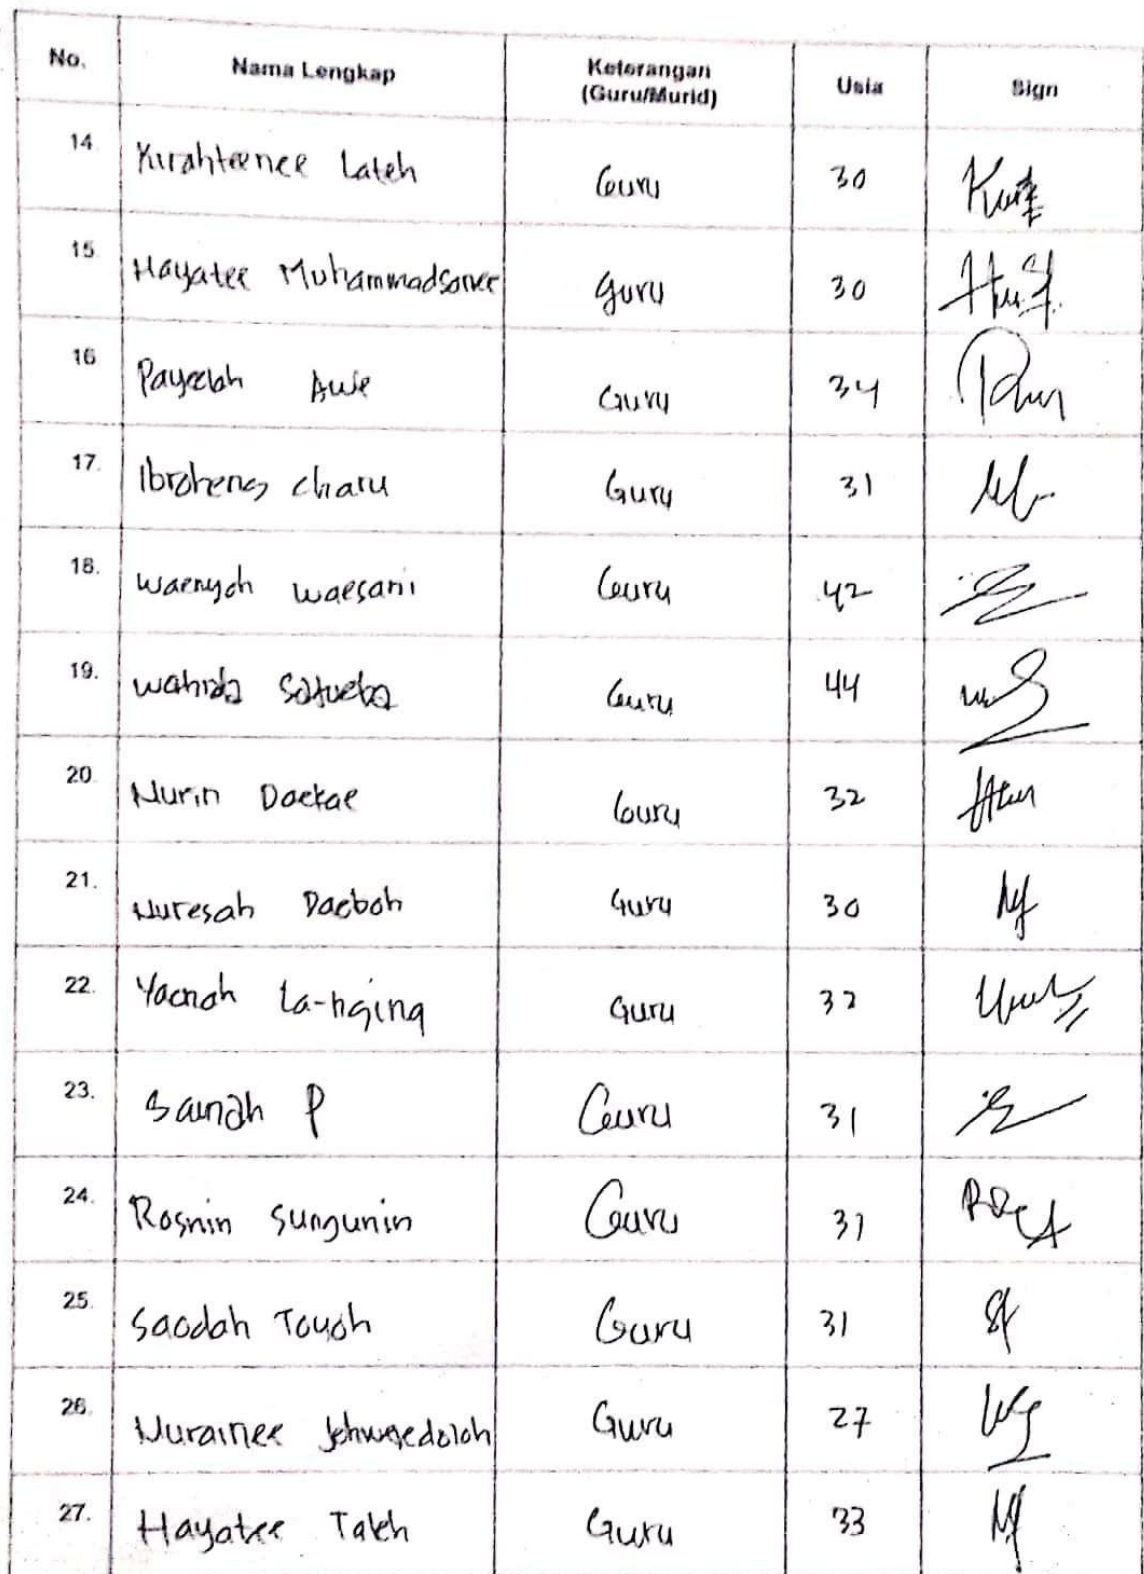 No. Nama Lengkap Keterangan (Guru/Murid) Usia Sign
14. Kurahteenee Lateh Guru 30
15. Hayatee Muhammadsanee Guru 30
16. Payeelah Awe Guru 34
17. Ibroheng charu Guru 31
18. waenyoh waesani Guru 42
19. wahida Satueba Guru 44
20. Nurin Daekae Guru 32
21. Nuresah Daeboh Guru 30
22. Yaenah La-nging Guru 32
23. Sainah P Guru 31
24. Rosnin Sungunin Guru 31
25. Saodah Tayoh Guru 31
26. Nurainee Guru 27
27. Hayatee Taleh Guru 33